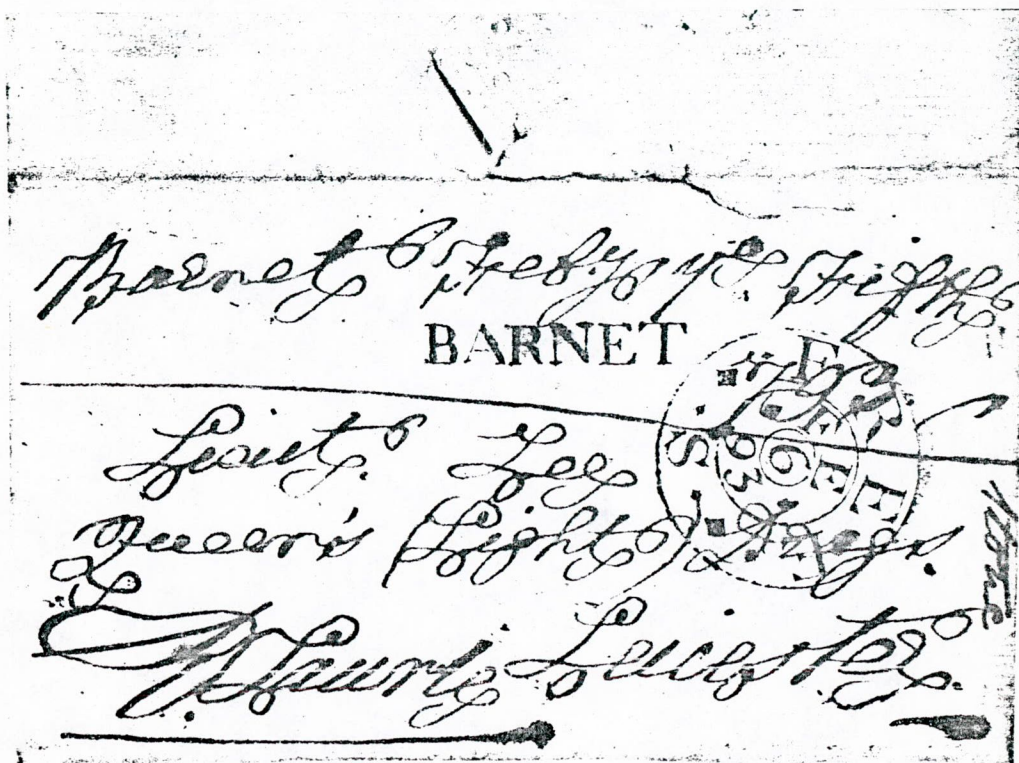 Barnet Feby ye Fifth
BARNET
FREE
S
FE 6 93
Lieut. Lee
Queen's (Light) Drags
Laurie Leicester